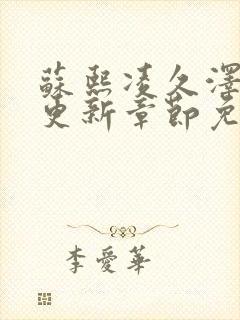 蘇熙凌久澤
更新章節免
李愛華